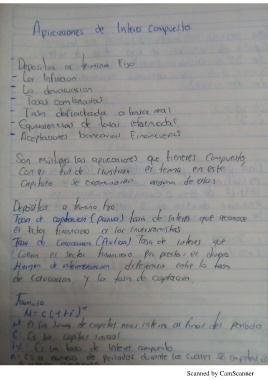 Aplicaciones de Interes Compuesto
- Depositos a termino Fijo
- La Inflacion
- La devaluacion
- Tasas combinadas
- Tasa deflactada o tasa real
- Equivalencias de tasas
- Aceptaciones bancarias Financieras
Son multiples las aplicaciones que tiene Compuesto
Con el fin de ilustrar el tema en este
Capitulo se examinaran algunas de ellas
Depositos a termino fijo
Tasa de captacion (pasiva) tasa de interes que reconoce
el financiero a los inversionistas
Tasa de Colocacion (Activa) Tasa de interes que
cobra el sector financiero Por prestar el dinero
Margen de intermediacion diferencia entre la tasa
de Colocacion y la tasa de captacion
Formula
M = C(1+i)^n
M: Es la suma de capital mas interes al final del periodo
C: Es el capital inicial
i: Es la tasa de interes compuesto
n: Es el numero de periodos durante los cuales se capitaliza
Scanned by CamScanner